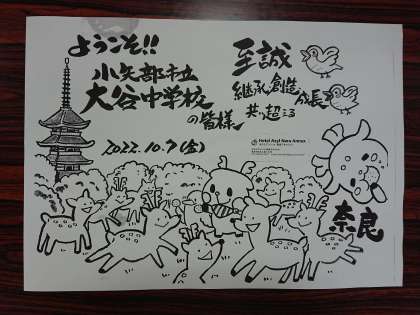 ようこそ!!
小矢部市立
大谷中学校
の皆様
2022.10.7(金)
至誠
継承、創造、成長
共に超える
Hotel Asyl Nara Annex
奈良